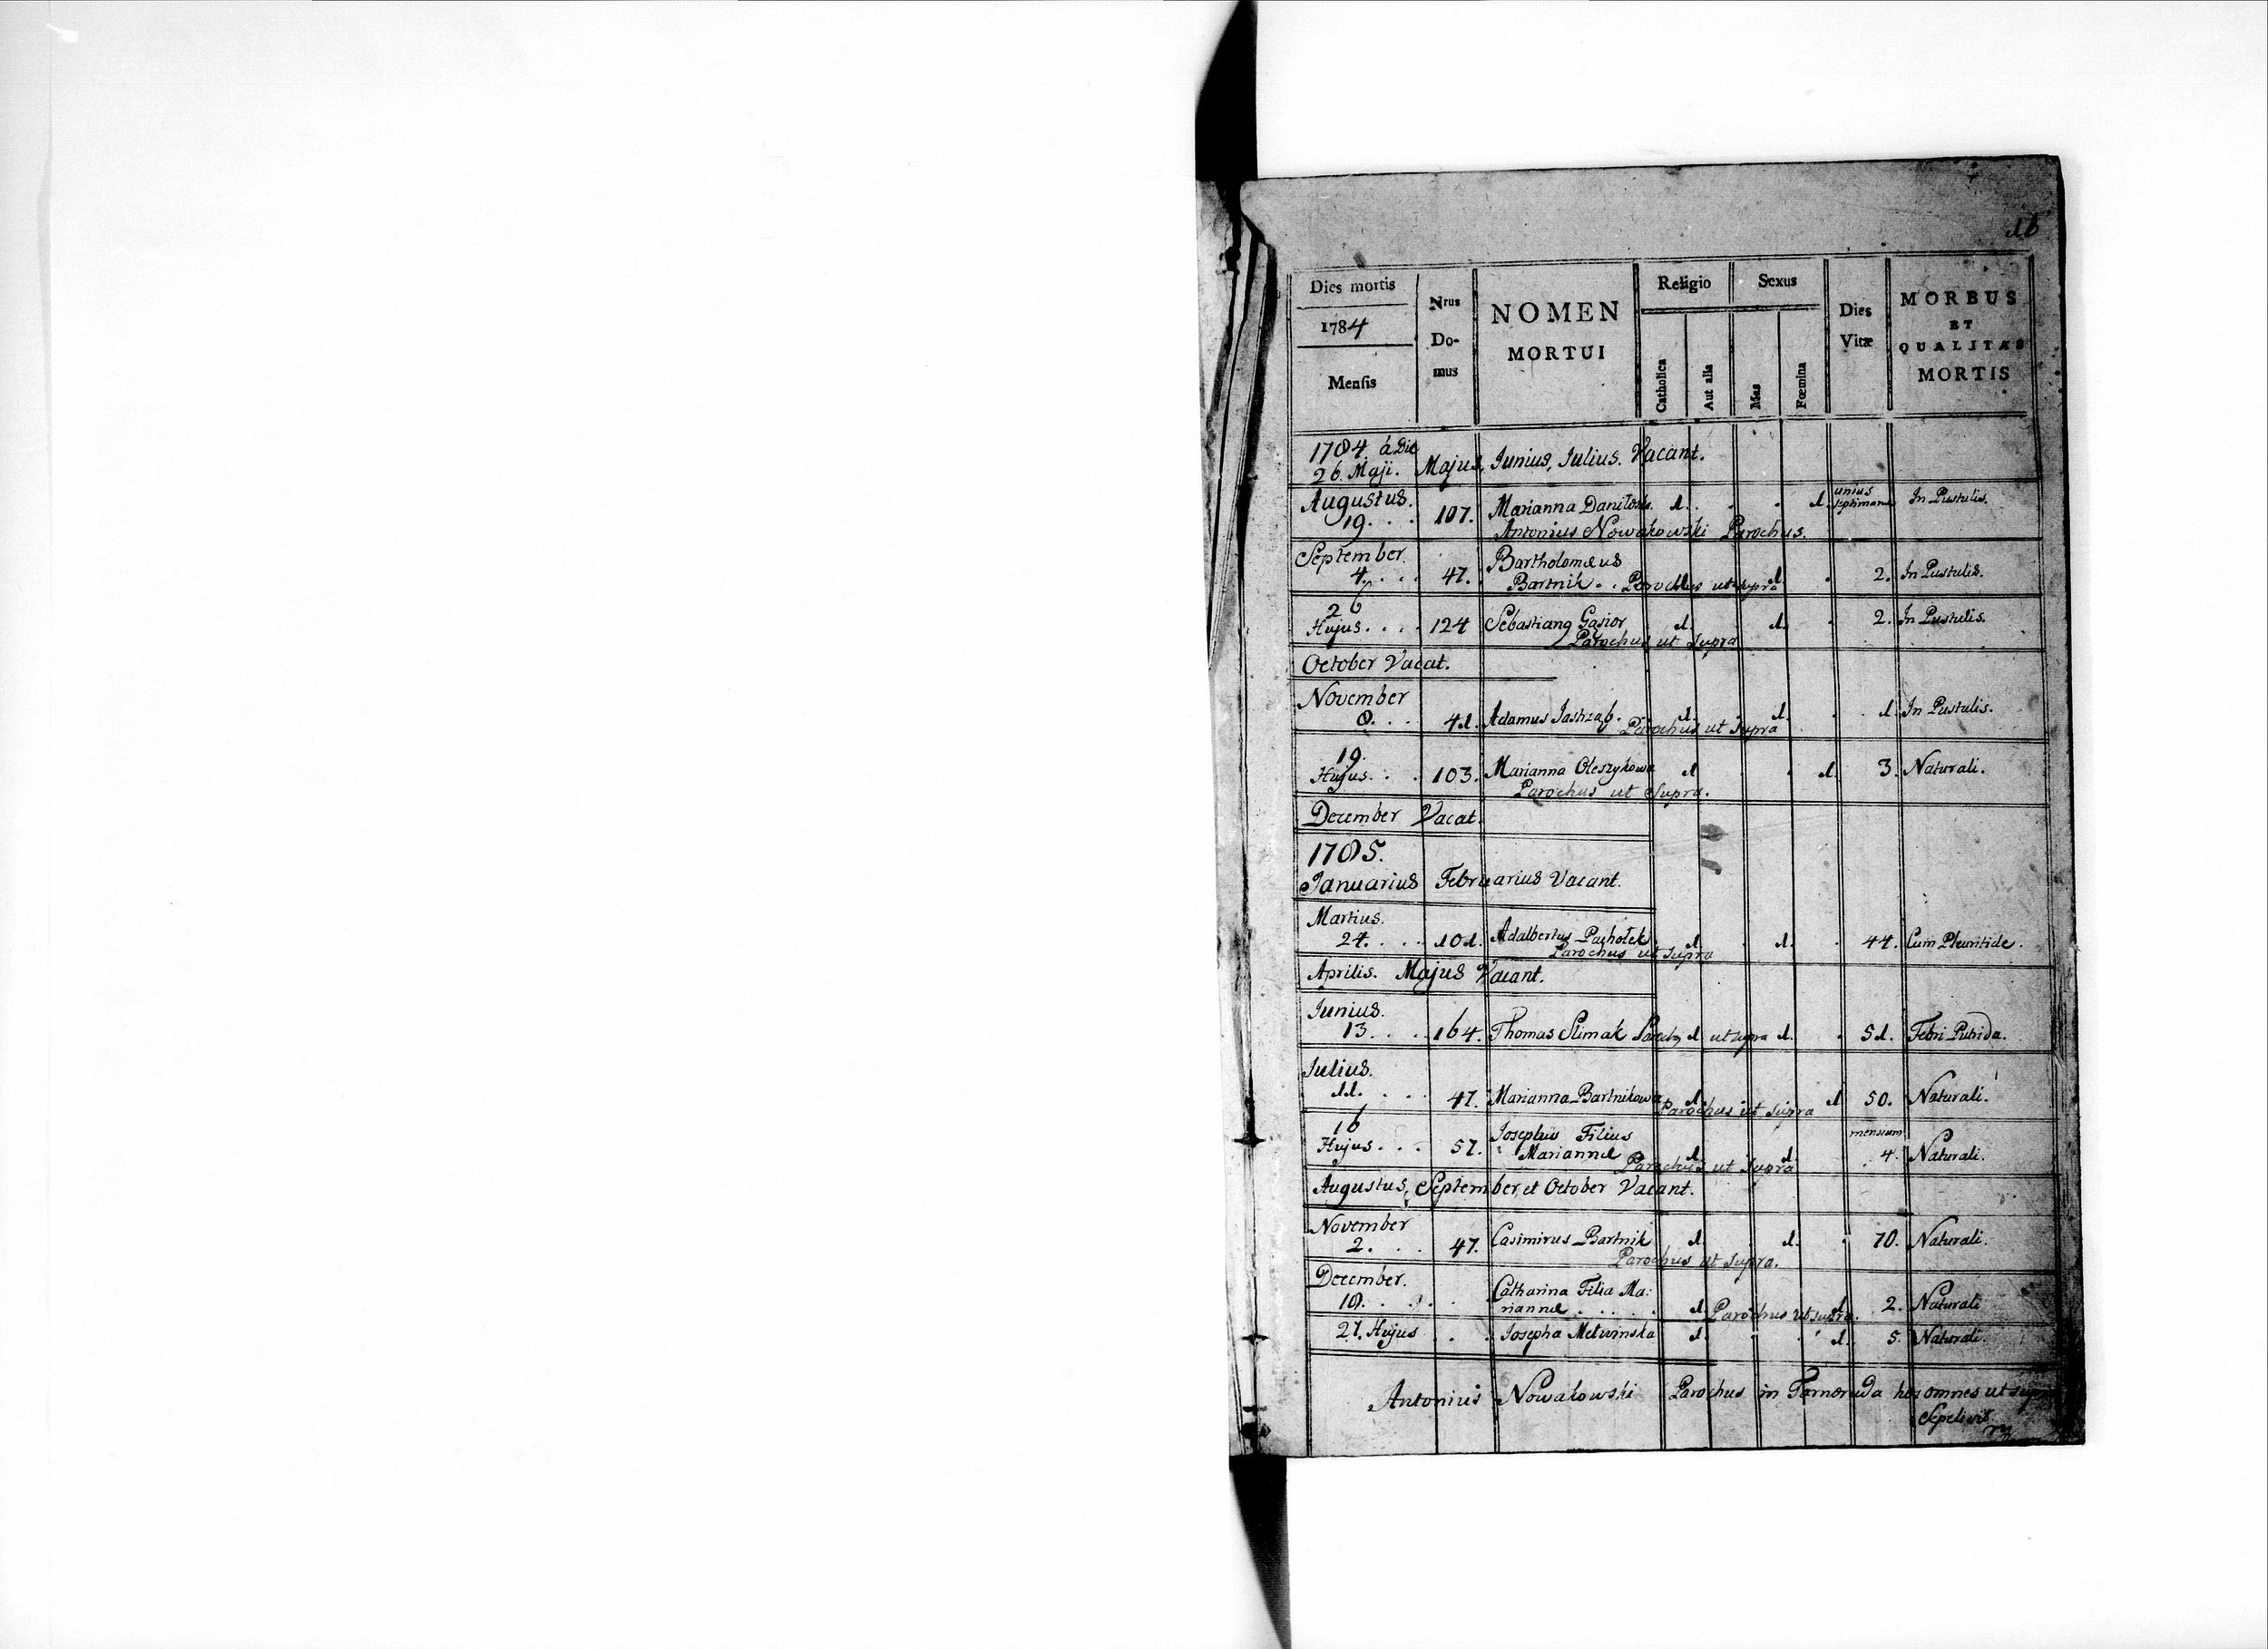 16
Dies mortis
1784
Mensis
Nrus
Do-
mus
NOMEN
MORTUI
Religio
Catholica
Aut alia
Sexus
Mas
Fœmina
Dies
Vitæ
MORBUS
ET
QUALITAS
MORTIS
1784. à Die
26. Maji. Majus, Iunius, Iulius. Vacant.
Augustus.
19. . . 107. Marianna 1. . . 1. unius septimanæ In Pustulis.
Antonius Nowakowski Parochus.
September.
4. . . . 47. Bartholomæus
Bartnik . . Parochus ut supra 1. 1. . 2. In Pustulis.
26
Hujus. . . . 124 Sebastianq Gąsior 1. 1. . 2. In Pustulis.
Parochus ut supra
October Vacat.
November
8. . . 41. Adamus Iastrząb. 1. . 1. . . 1. In Pustulis.
Parochus ut supra
19.
Hujus. . . 103. Marianna Oleszykowa 1 . . 1. 3. Naturali.
Parochus ut supra.
December Vacat.
1785.
Ianuarius Februarius Vacant.
Martius.
24. . . . 101. Adalbertus Pachołek 1. . 1. . 44. Cum Pleuritide.
Parochus ut supra
Aprilis. Majus Vacant.
Iunius.
13. . . . 164. Thomas Slimak Parochq 1 ut supra 1. . 51. Febri Putrida.
Iulius.
11. . . . 47. Marianna Bartnikowa 1. 1 50. Naturali.
Parochus ut supra
16
Hujus. . . 57. Iosephus Filius
Mariannæ 1. 1. mensium 4. Naturali.
Parochus ut supra
Augustus, September, et October Vacant.
November
2. . . . 47. Casimirus Bartnik 1. 1. . 70. Naturali.
Parochus ut supra.
December.
18. . . . Catharina Filia Ma:
riannæ . . . . . 1. Parochus ut supra. 1. 2. Naturali
27. Hujus . . Iosepha 1. . . 1. 5. Naturali.
Antonius Nowakowski Parochus in Tarnoruda hos omnes ut supra
Sepelivit.